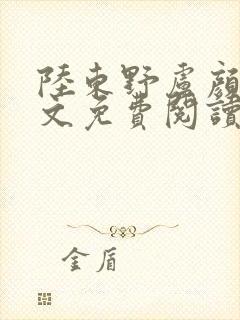 陸東野盧顔
文免費閱讀
金盾